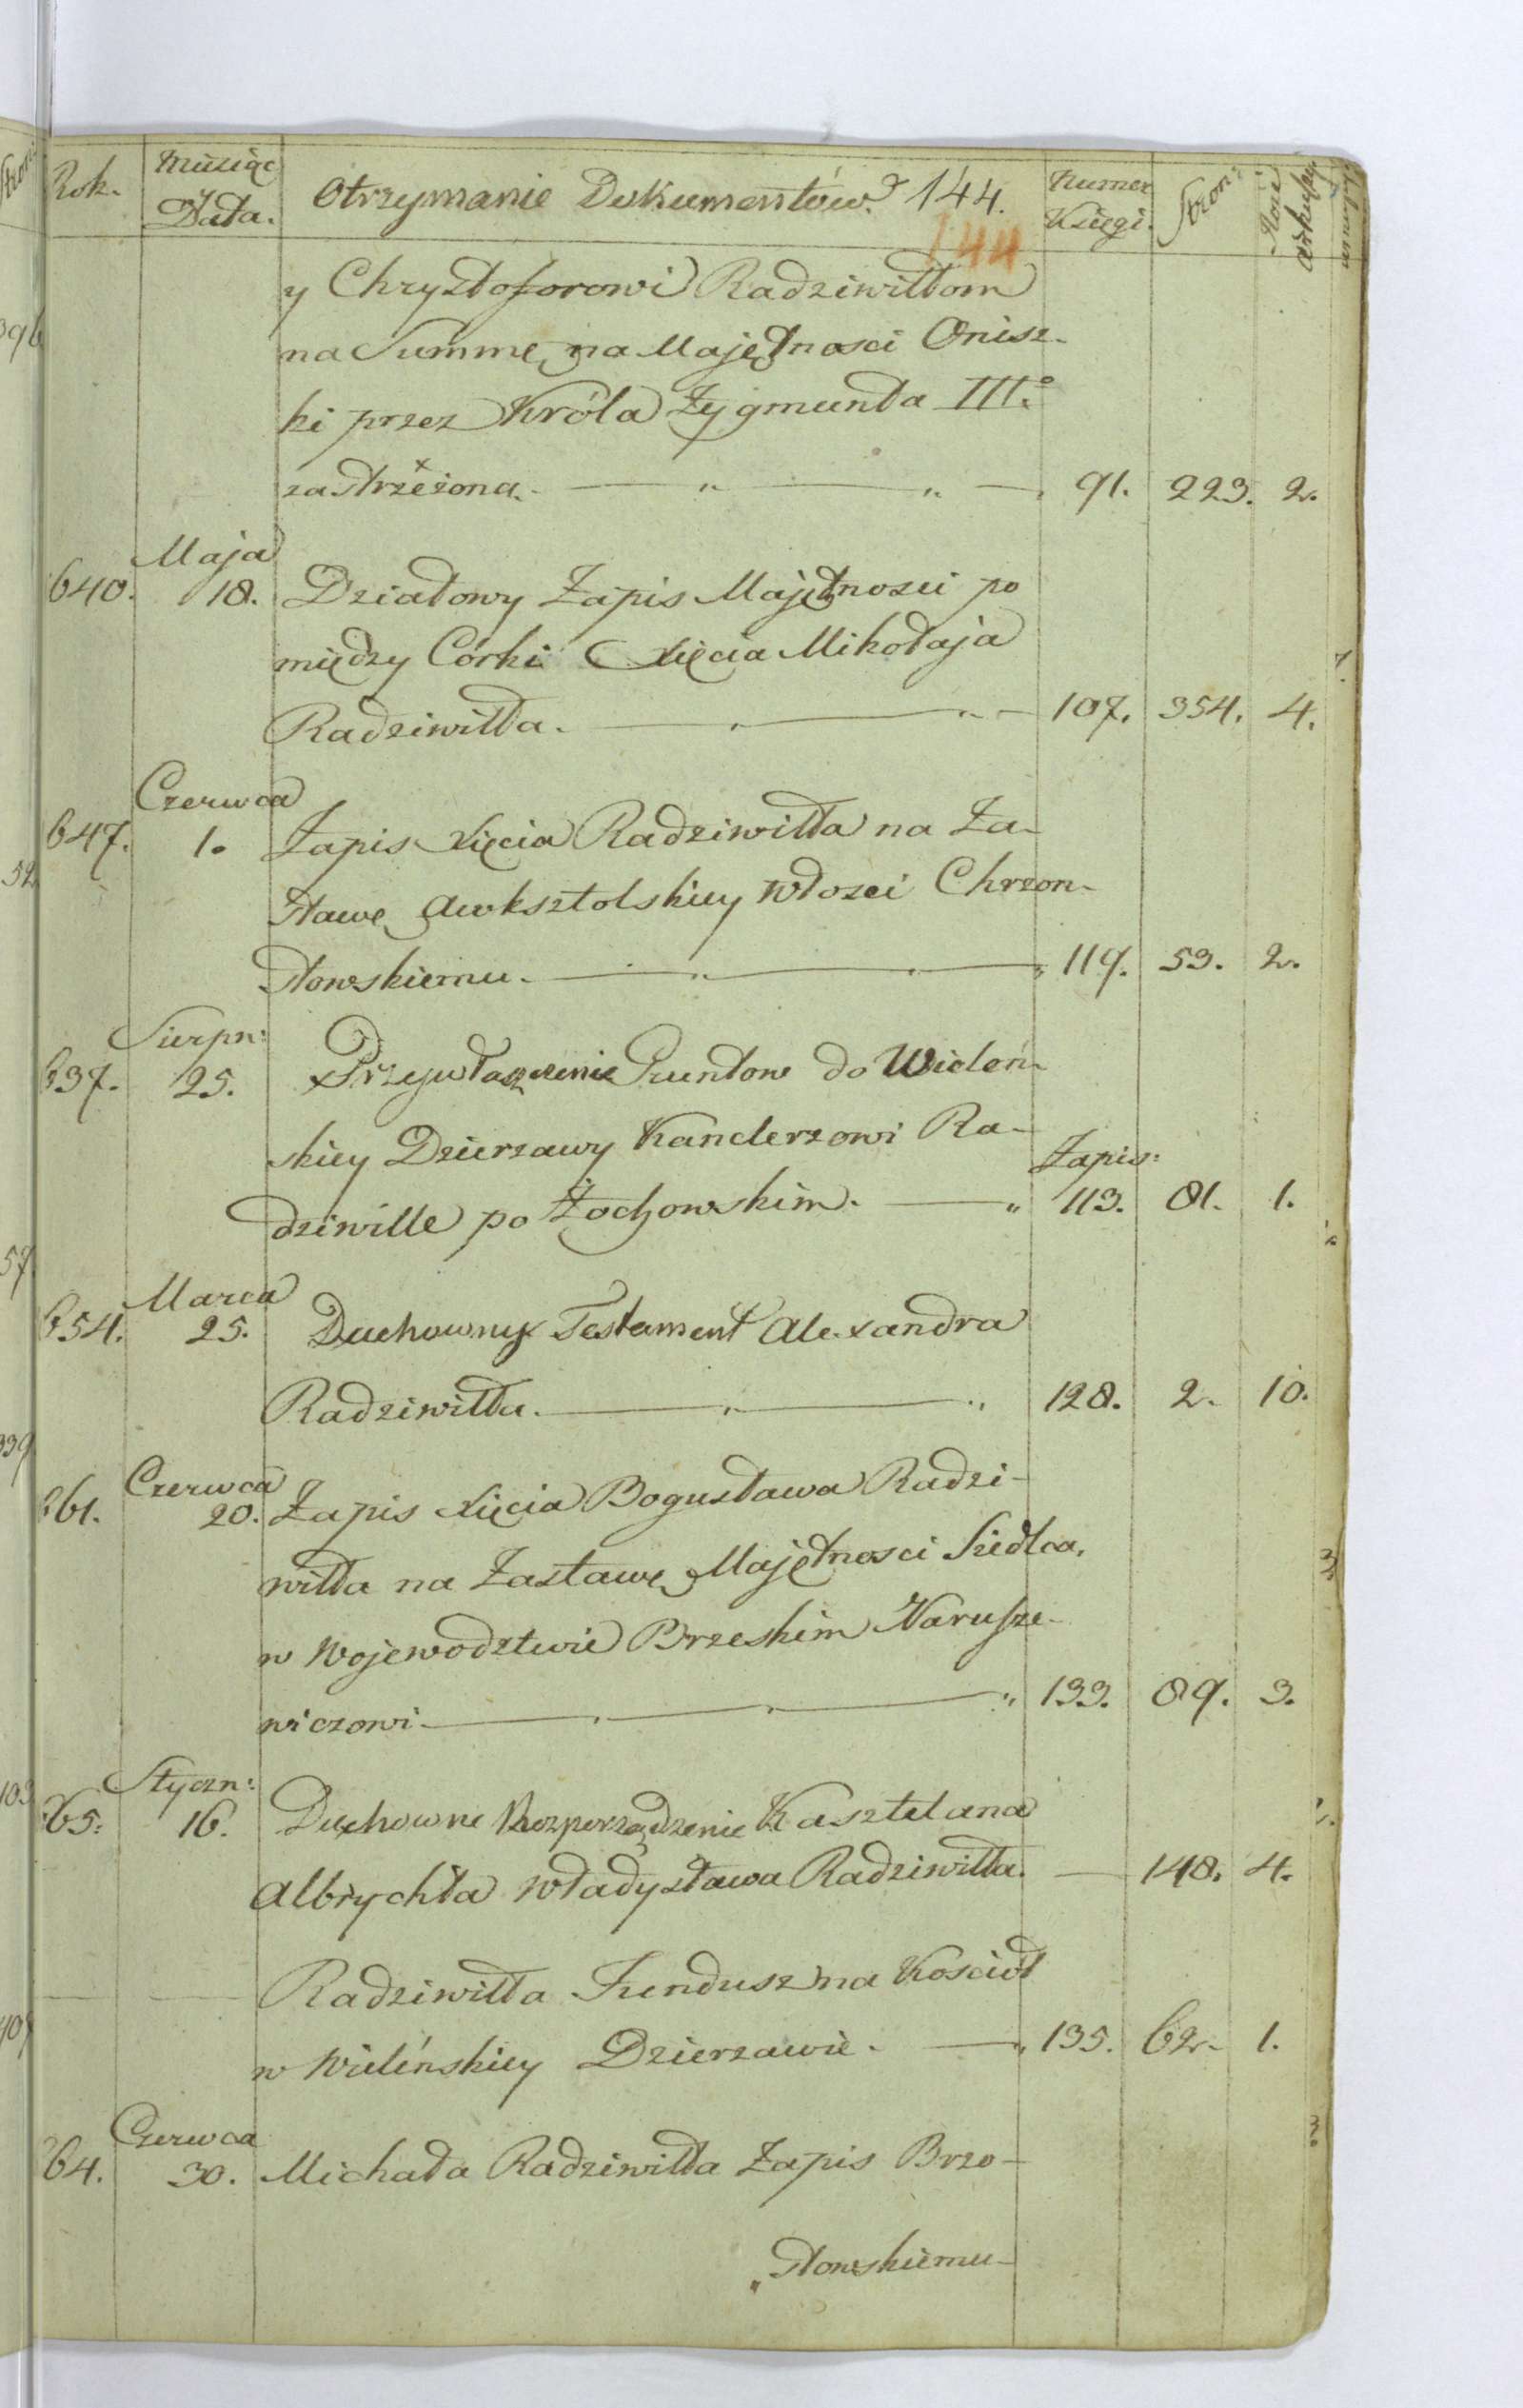 Rok. Miesiąc Data. Otrzymanie Dokumentów. 144. Numer Księgi. Stron:
144
y Chrysztoforowi Radziwiłłom
na Summę na Majętnosci Onisz-
ki przez Króla Zygmunta III.°
zastrzeżona. 91. 223. 2.
Maja
640. 18. Działowy Zapis Majętnosci po
między Córki Xięcia Mikołaja
Radziwiłła. 107. 354. 4.
Czerwca
647. 1. Zapis Xięcia Radziwiłła na Za-
stawę Awksztolskiey Włosci Chrzon-
stowskiemu. 119. 53. 2.
Sierpn:
637. 25. Przywłaszczenie Gruntow do Wideń-
skiey Dzierzawy Kanclerzowi Ra-
Zapis:
dziwille po Żochowskim. 113. 81. 1.
Marca
654. 25. Duchowny Testament Alexandra
Radziwiłła. 128. 2. 10.
Czerwca
661. 20. Zapis Xięcia Bogusława Radzi-
wiłła na Zastawę Majętnosci Siedlca,
w Wojewodztwie Brzeskim Narusze-
wiczowi 133. 89. 3.
Styczn:
65. 16. Duchowne Rozporządzenie Kasztelana
Albrychta Władysława Radziwiłła. 148. 4.
Radziwiłła Fundusz na Kosciół
w Wieleńskiey Dzierzawie. 135. 62. 1.
Czerwca
64. 30. Michała Radziwiłła Zapis Brzo-
stowskiemu